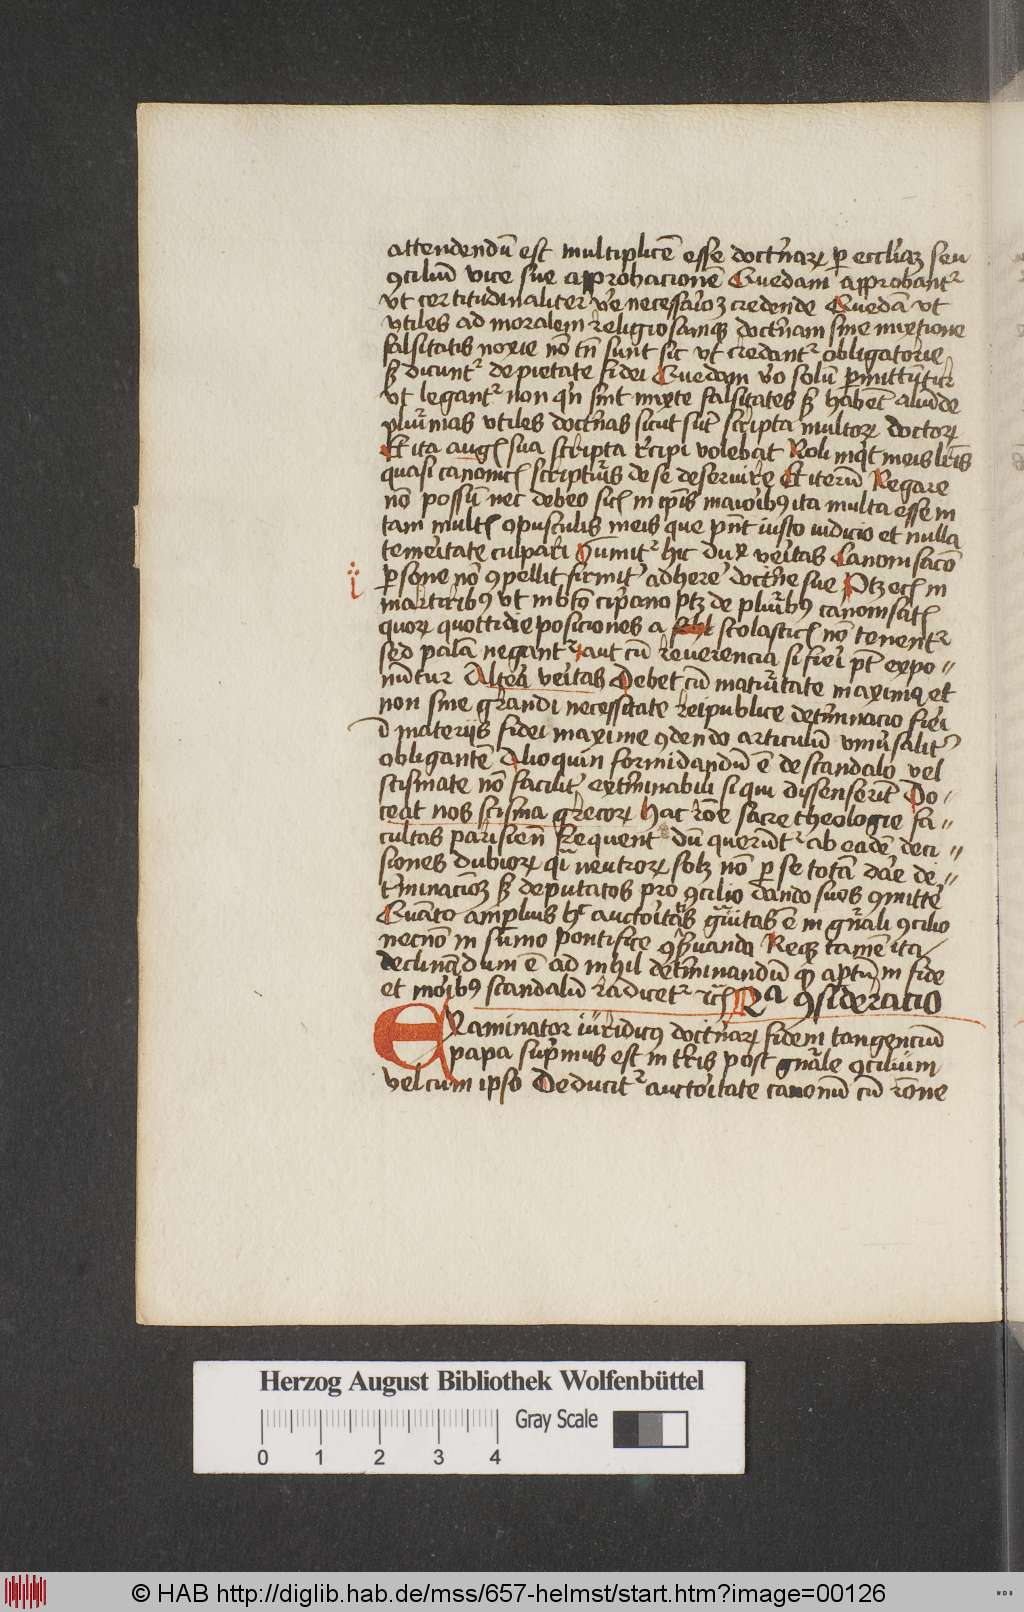 attendendū est multiplicē esse doctͥnaꝝ ꝑ eccliaꝫ seu
ꝯciliū vice sue approbacionē Quedam approbantᷣ
vt certitudinaliter vͤ necessario credende Quedā vt
vtiles ad moralem religiosamqꝫ doctͥnam sine mixtione
falsitatis noxie nō tn̄ sunt sic vt credantᷣ obligatorie
sꝫ dicuntᷣ de pietate fidei Quedam v̊o solū ꝑmittūtur
vt legantᷣ non qͥn sint mixte falsitates sꝫ habent aliūde
plurimas vtiles doctͥnas sicut sūt scripta multoꝝ doctoꝝ
Et ita augꝰ sua scripta rͤcipi volebat Noli inqͥt meis lrͥs
quasi canonicꝭ scriptuͥs de se deseruire Et iterū Negare
nō possū nec debeo sicꝭ in ipͥs maioribꝰ ita multa esse in
tam multꝭ opusculis meis que pn̄t iusto iudicio et nulla
temeͥtate culpari Sumitᷣ hic duꝝ veͥtas Canonisacō
ꝑsone nō ꝯpellit firmitͥ adhereͤ doctͥne sue Ptꝫ ecꝭ in
martiribꝰ vt in bt̄o cipͥano ptꝫ de pluͥbꝰ canonisatꝭ
quoꝝ quottidie posiciones a scolasticꝭ nō tenentᷣ
sed palā negantᷣ aut cū reuerencia si fieͥ pt̄ expo-
nūtur Alteͣ veͥtas Debet cū matuͥtate maximͣ et
non sine grandi necessitate reipublice detͤminacio fieͥ
ī materijs fidei maxime ꝯdendo articulū vniusalitͥ
obligantē Alioquin formidandū ē de scandalo vel
scismate nō facilitͥ extͤminabili si qui dissenserit Do-
ceat nos scisma grecoꝝ hac rōe sacre theologie fa-
cultas parisien̄ frequent dū queruntᷣ ab eadē deci-
siones dubioꝝ qͥ neutroꝝ solꝫ nō ꝑ se totā dare de-
tͤminacioꝫ sꝫ deputatos pro ꝯcilio dando suos ꝯmittͤ
Quāto amplius hͨ auctoͥtas gͣuitas ē in gn̄ali ꝯcilio
necnō in sūmo pontifice ꝯẜuanda Neqꝫ tamē ita
declinādum ē ad nihil detͤminandū qͣ aptū in fide
et moͥbꝰ scandalū radicetᷣ ⁊cꝭ 2ᵃ ꝯsideracio
Examinator iūridicꝰ doctͥnaꝝ fidem tangenciū
papa supͤmus est in tͤris post gn̄ale ꝯcilium
vel cum ipso Deducitᷣ auctoͥtate canonū cū rōne
Herzog August Bibliothek Wolfenbüttel
Gray Scale
0 1 2 3 4
© HAB http://diglib.hab.de/mss/657-helmst/start.htm?image=00126